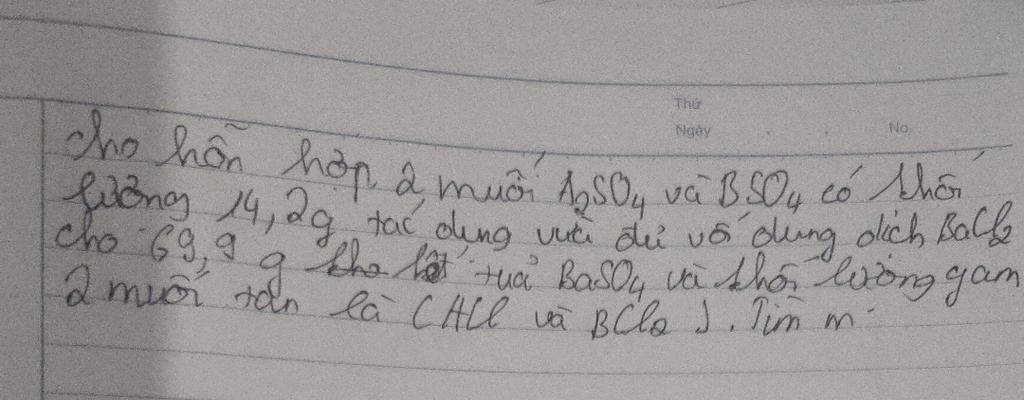 Thứ
Ngày . . No.
Cho hỗn hợp 2 muối A2SO4 và BSO4 có khối
lượng 14,2g tác dụng vừa đủ với dung dịch BaCl2
cho 69,9 g kết tủa BaSO4 và khối lượng gam
2 muối tan là (ACl và BCl2). Tìm m.